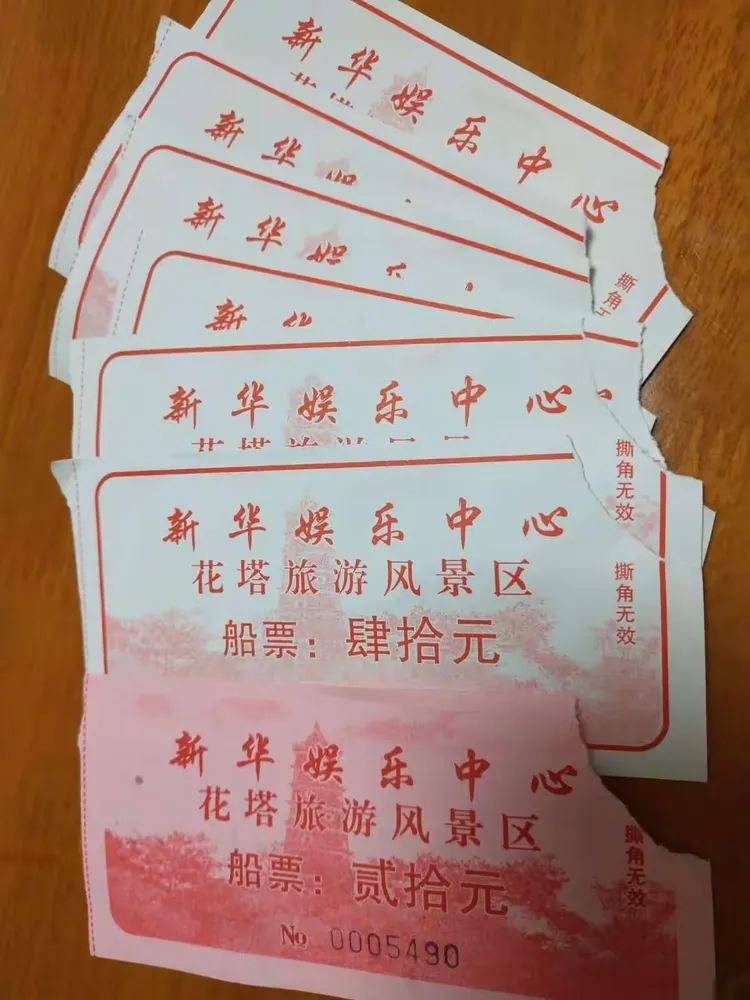 新华娱乐中心
撕角
新华
新华
新
新华娱乐中心
花塔旅游风景
撕角无效
新华娱乐中心
花塔旅游风景区
船票：肆拾元
撕角无效
新华娱乐中心
花塔旅游风景区
船票：贰拾元
撕角无效
No 0005490